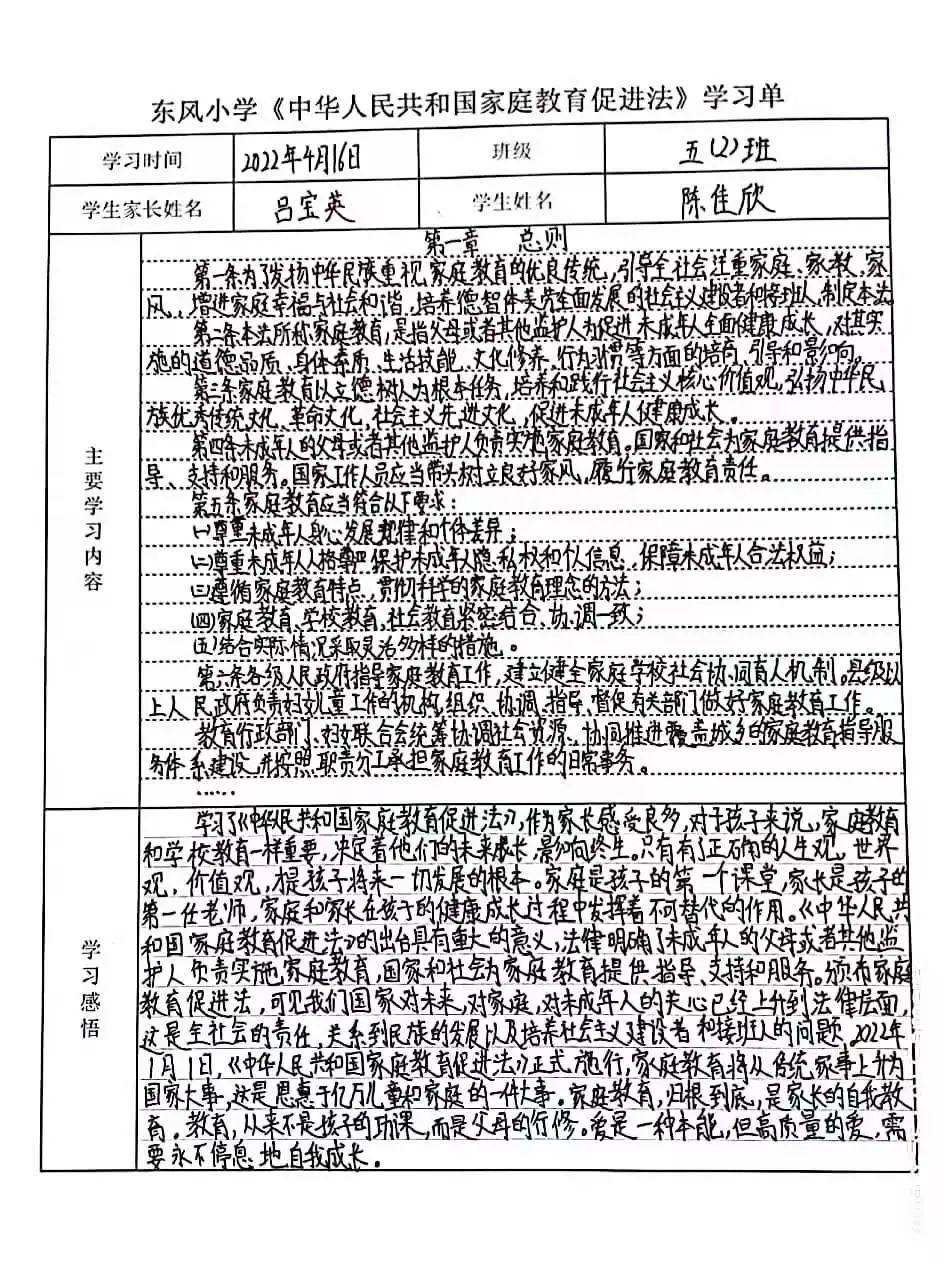 东风小学《中华人民共和国家庭教育促进法》学习单
学习时间 2022年4月16日 班级 五(2)班
学生家长姓名 吕宝英 学生姓名 陈佳欣
主要学习内容
第一章 总则
第一条为了发扬中华民族重视家庭教育的优良传统,引导全社会注重家庭、家教、家
风,增进家庭幸福与社会和谐,培养德智体美劳全面发展的社会主义建设者和接班人,制定本法
第二条本法所称家庭教育,是指父母或者其他监护人为促进未成年人全面健康成长,对其实
施的道德品质、身体素质、生活技能、文化修养、行为习惯等方面的培育、引导和影响。
第三条家庭教育以立德树人为根本任务,培养和践行社会主义核心价值观,弘扬中华民
族优秀传统文化、革命文化,社会主义先进文化,促进未成年人健康成长。
第四条未成年人的父母或者其他监护人负责实施家庭教育。国家和社会为家庭教育提供指
导、支持和服务。国家工作人员应当带头树立良好家风,履行家庭教育责任。
第五条家庭教育应当符合以下要求:
(一)尊重未成年人身心发展规律和个体差异;
(二)尊重未成年人人格尊严保护未成年人隐私权和个人信息,保障未成年人合法权益;
(三)遵循家庭教育特点,贯彻科学的家庭教育理念的方法;
(四)家庭教育、学校教育、社会教育紧密结合、协调一致;
(五)结合实际情况采取灵活多样的措施。
第六条各级人民政府指导家庭教育工作,建立健全家庭学校社会协同育人机制。县级以
上人民政府负责妇女儿童工作的机构,组织、协调、指导、督促有关部门做好家庭教育工作。
教育行政部门、妇女联合会统筹协调社会资源,协同推进覆盖城乡的家庭教育指导服
务体系建设,并按照职责分工承担家庭教育工作的日常事务。
……
学习感悟
学习了《中华人民共和国家庭教育促进法》,作为家长感受良多,对于孩子来说,家庭教育
和学校教育一样重要,决定着他们的未来成长,影响终生。只有有了正确的人生观,世界
观,价值观,才是孩子将来一切发展的根本。家庭是孩子的第一个课堂,家长是孩子的
第一任老师,家庭和家长在孩子的健康成长过程中发挥着不可替代的作用。《中华人民共
和国家庭教育促进法》的出台具有重大的意义,法律明确了未成年人的父母或者其他监
护人负责实施家庭教育,国家和社会为家庭教育提供指导、支持和服务。颁布家庭
教育促进法,可见我们国家对未来,对家庭,对未成年人的关心已经上升到法律层面,
这是全社会的责任,关系到民族的发展以及培养社会主义建设者和接班人的问题。2022年
1月1日,《中华人民共和国家庭教育促进法》正式施行,家庭教育将从传统家事上升为
国家大事,这是恩惠于亿万儿童和家庭的一件大事。家庭教育,归根到底,是家长的自我教
育。教育,从来不是孩子的功课,而是父母的行修。爱是一种本能,但高质量的爱,需
要永不停息地自我成长。